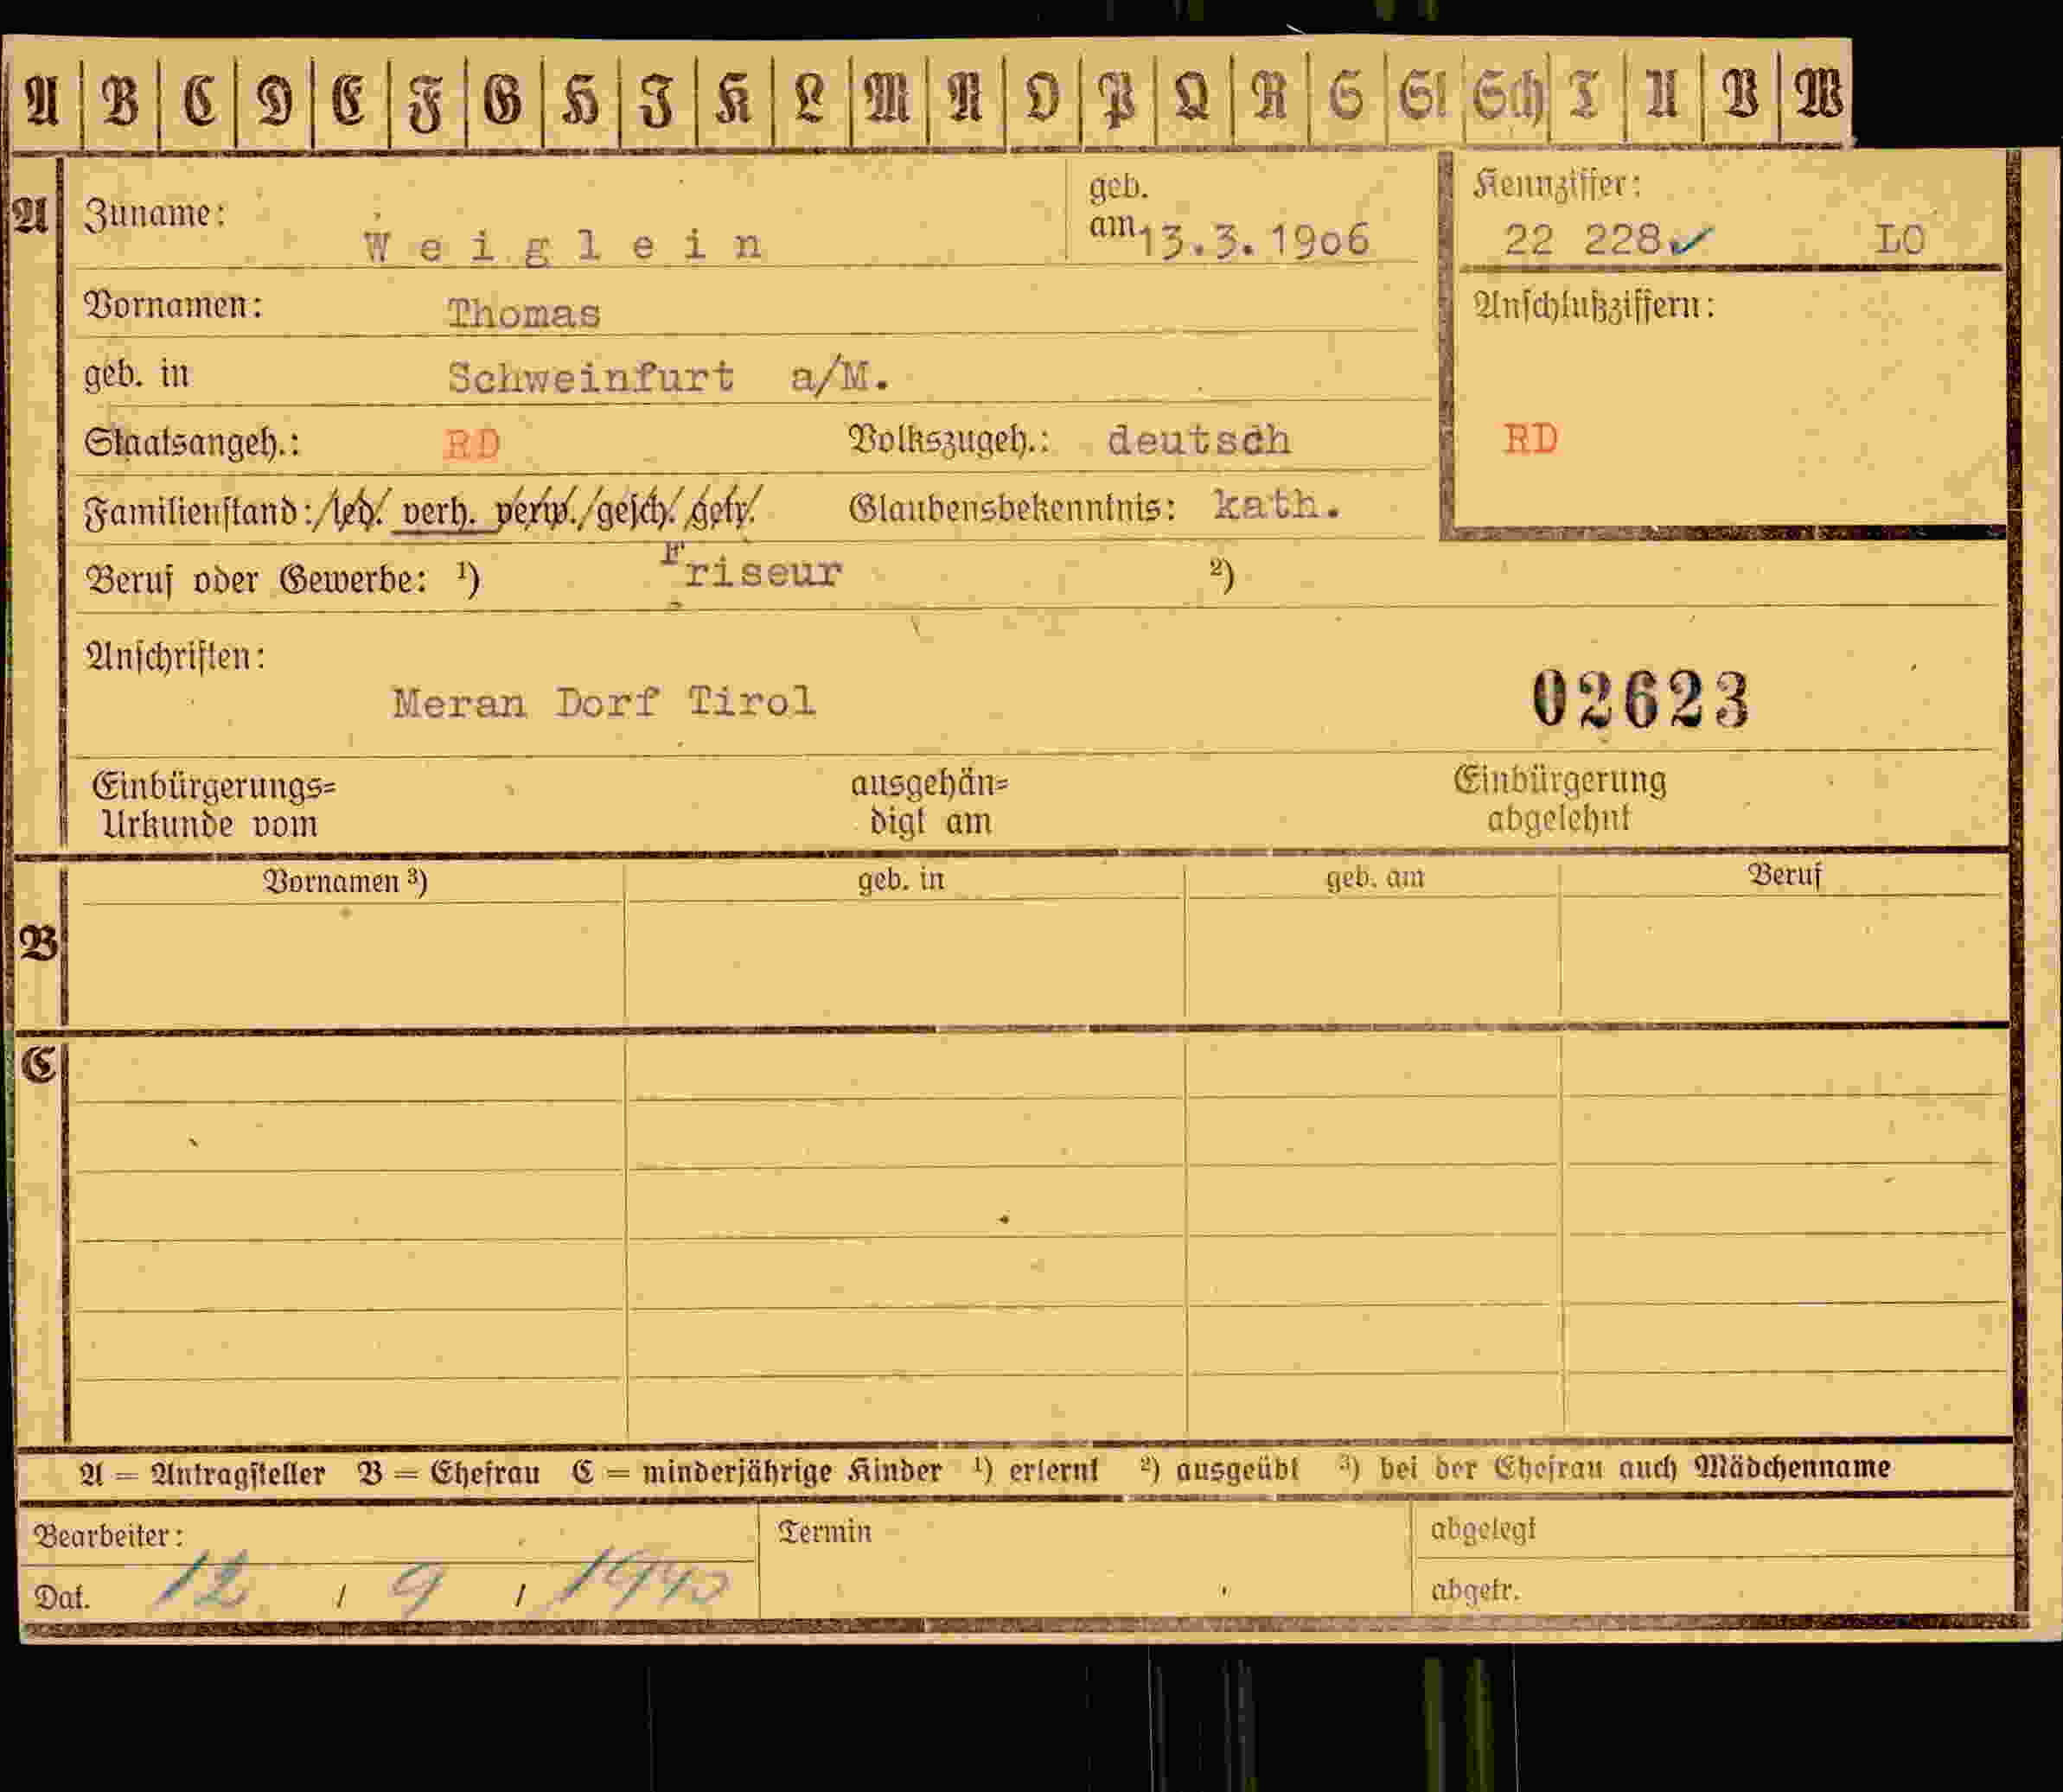 A B C D E F G H I K L M N O P Q R S St Sch T U V W
A Zuname: Weiglein geb. am 13.3.1906 Kennziffer: 22 228 LO
Vornamen: Thomas Anschlußziffern:
geb. in Schweinfurt a/M.
Staatsangeh.: RD Volkszugeh.: deutsch RD
Familienstand: led. verh. verw. gesch. getr. Glaubensbekenntnis: kath.
Beruf oder Gewerbe: ¹) Friseur ²)
Anschriften:
Meran Dorf Tirol 02623
Einbürgerungs= ausgehän= Einbürgerung
Urkunde vom digt am abgelehnt
Vornamen ³) geb. in geb. am Beruf
B
C
A = Antragsteller B = Ehefrau C = minderjährige Kinder ¹) erlernt ²) ausgeübt ³) bei der Ehefrau auch Mädchenname
Bearbeiter: Termin abgelegt
Dat. 12 / 9 / 1940 abgetr.